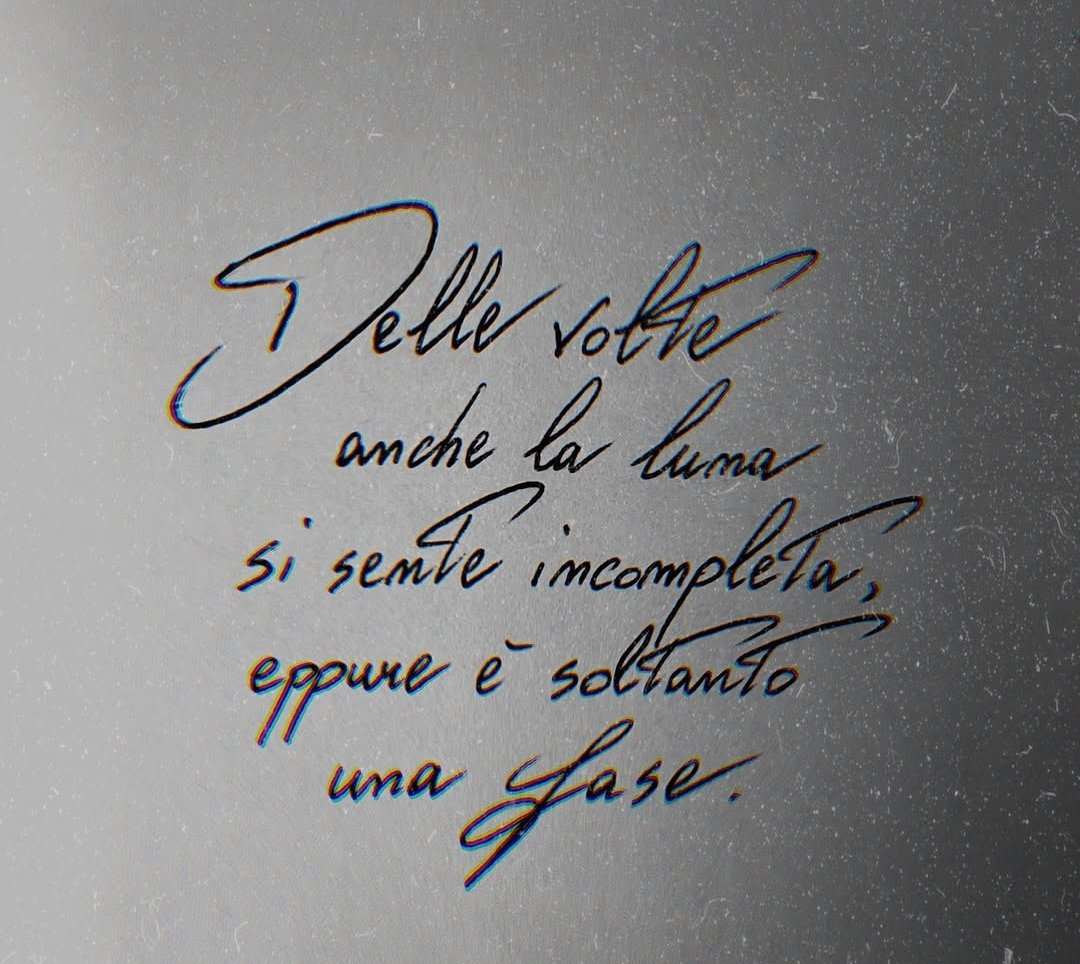 Delle volte
anche la luna
si sente incompleta,
eppure è soltanto
una fase.